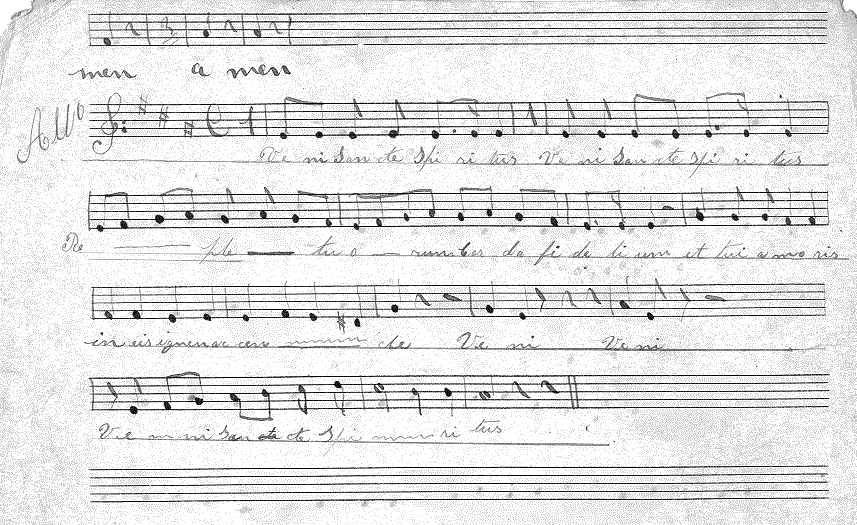 men a men
Allo
Ve ni San cte Spi ri tus Ve ni San cte Spi ri tus
Re ple tuo rum cor da fi de li um et tui a mo ris
in eis ignem ac cen de Ve ni Ve ni
Ve ni San cte Spi ri tus